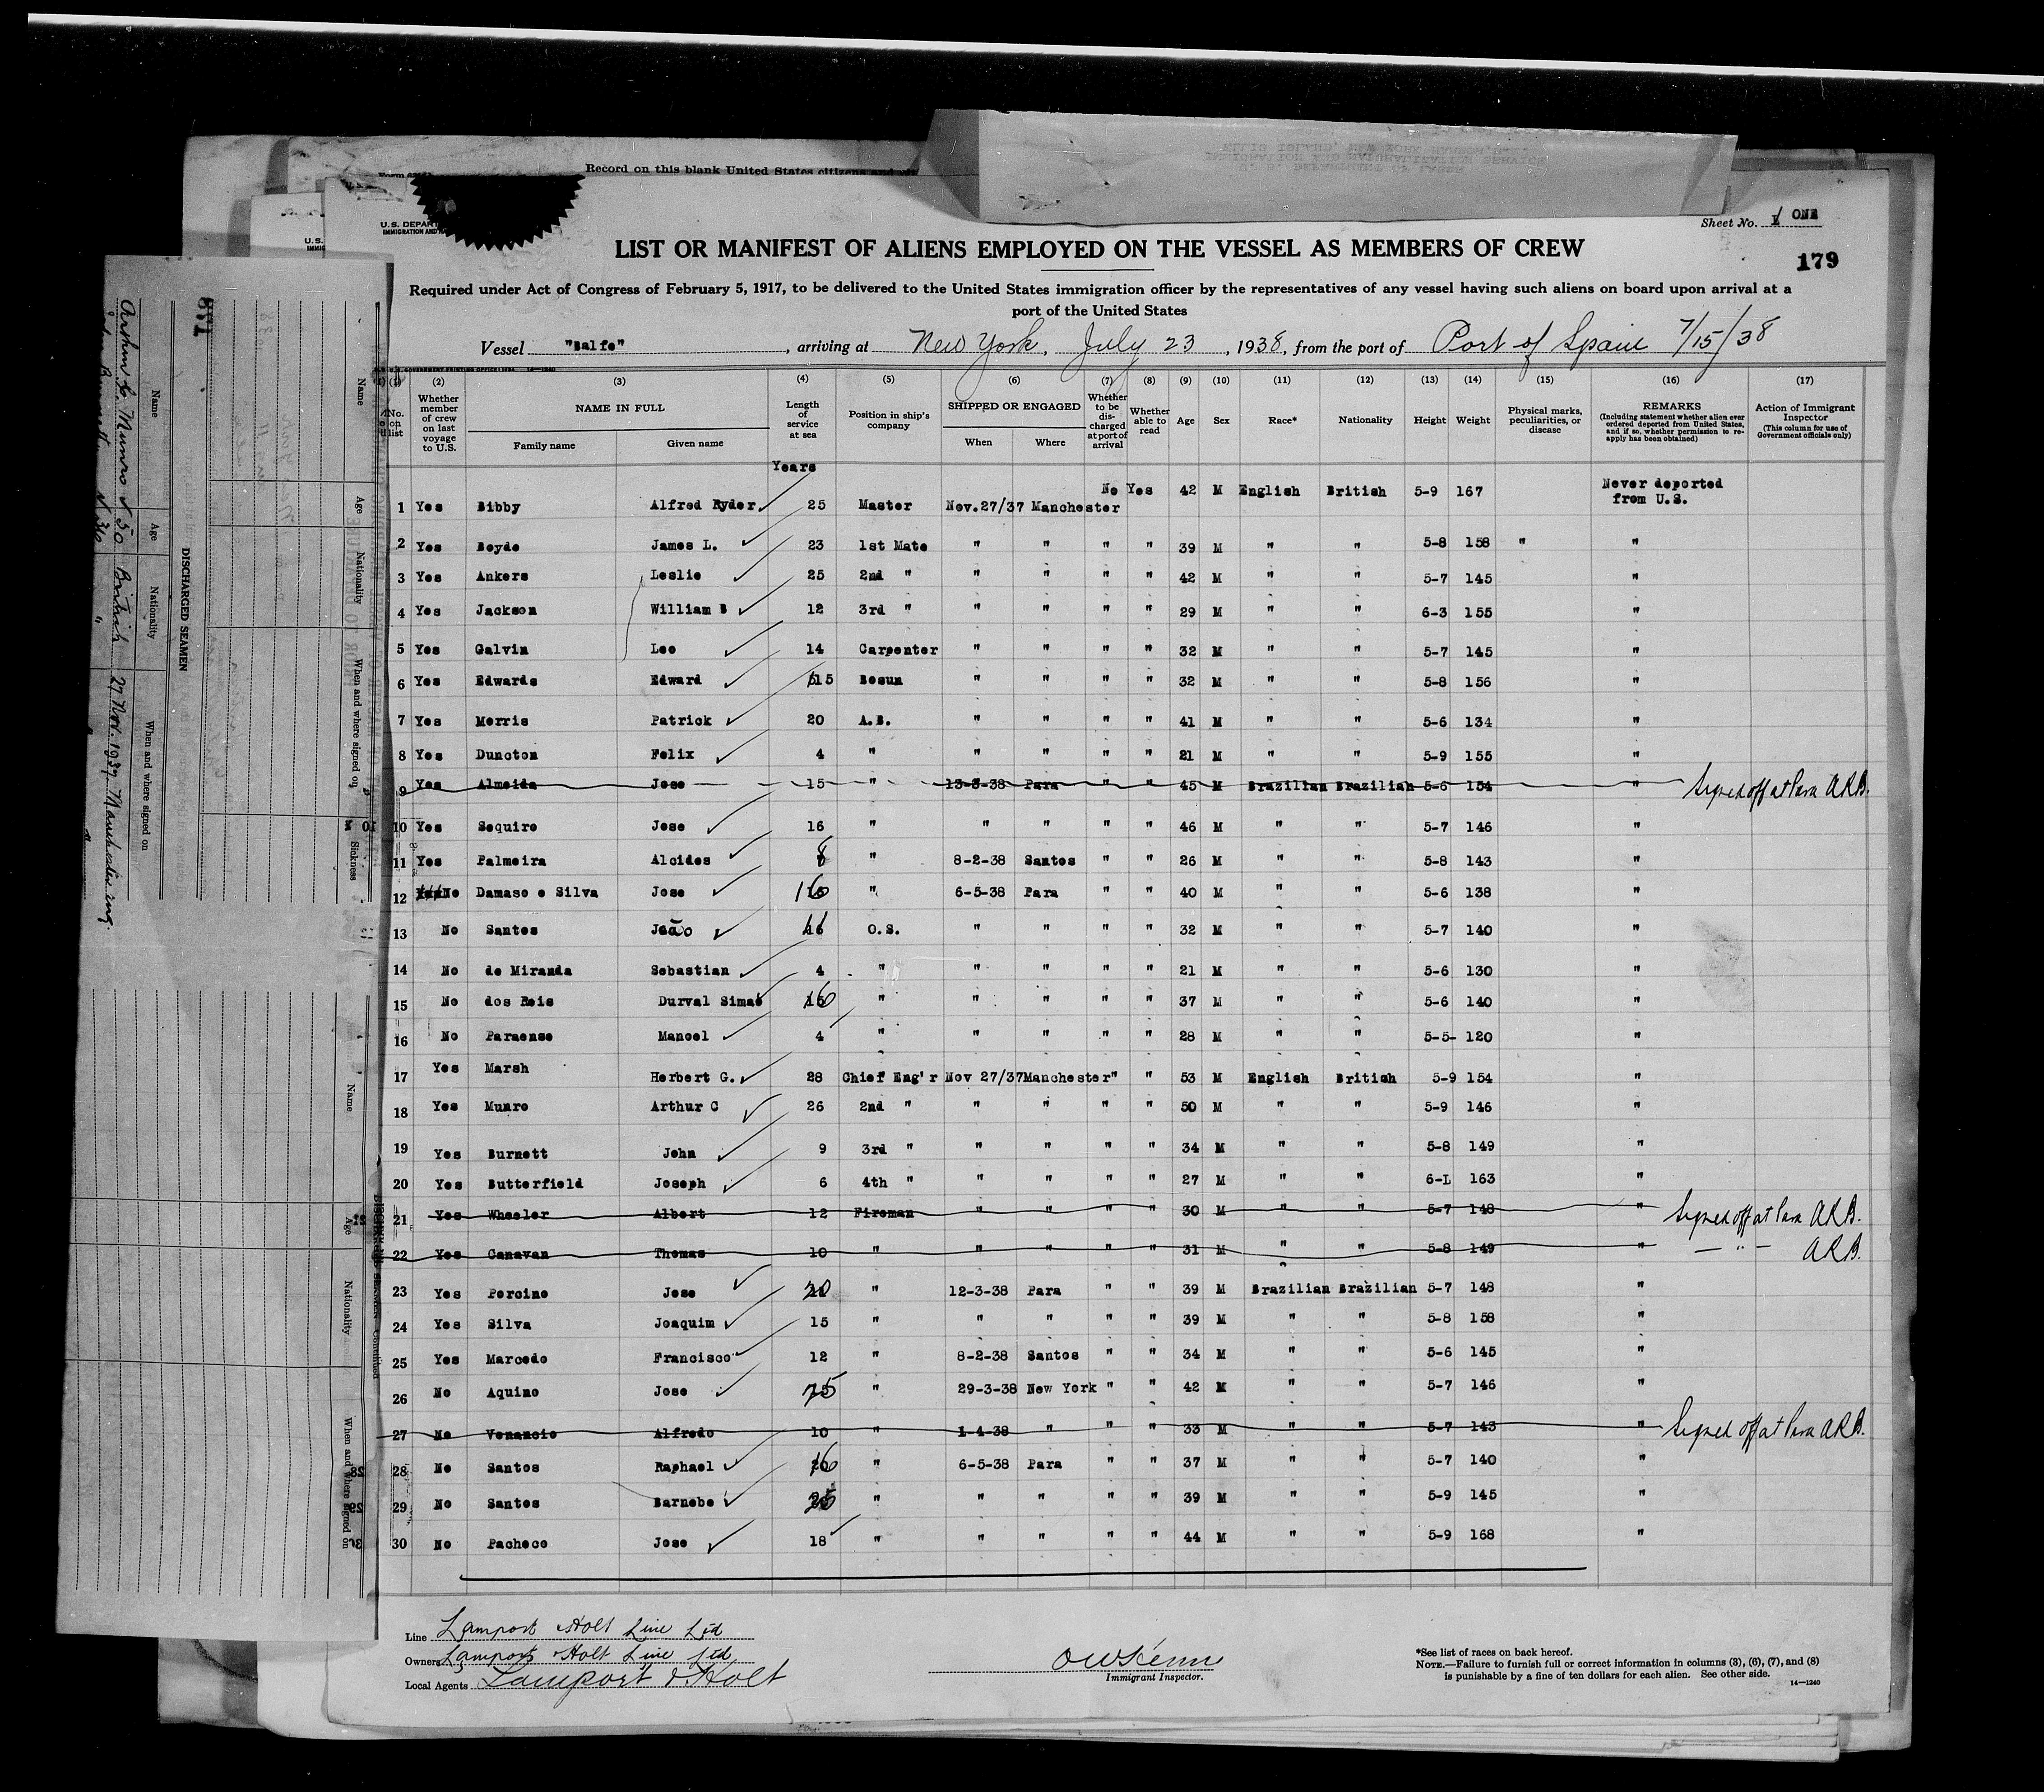 Record on this blank United States citizens and
U.S. DEPART
IMMIGRATION AND
Sheet No. 1 ONE
179
LIST OR MANIFEST OF ALIENS EMPLOYED ON THE VESSEL AS MEMBERS OF CREW
Required under Act of Congress of February 5, 1917, to be delivered to the United States immigration officer by the representatives of any vessel having such aliens on board upon arrival at a
port of the United States
Vessel "Balfe", arriving at New York, July 23, 1938, from the port of Port of Spain 7/15/38
(1) (2) (3) (4) (5) (6) (7) (8) (9) (10) (11) (12) (13) (14) (15) (16) (17)
No. on list
Whether member of crew on last voyage to U.S.
NAME IN FULL
Family name Given name
Length of service at sea
Position in ship's company
SHIPPED OR ENGAGED
When Where
Whether to be discharged at port of arrival
Whether able to read
Age
Sex
Race*
Nationality
Height
Weight
Physical marks, peculiarities, or disease
REMARKS
(Including statement whether alien ever ordered deported from United States, and if so, whether permission to reapply has been obtained)
Action of Immigrant Inspector
(This column for use of Government officials only)
Years
1 Yes Bibby Alfred Ryder 25 Master Nov.27/37 Manchester No Yes 42 M English British 5-9 167 Never deported from U.S.
2 Yes Boyde James L. 23 1st Mate " " " " 39 M " " 5-8 158 " "
3 Yes Ankers Leslie 25 2nd " " " " " 42 M " " 5-7 145 "
4 Yes Jackson William B 12 3rd " " " " " 29 M " " 6-3 155 "
5 Yes Galvin Leo 14 Carpenter " " " " 32 M " " 5-7 145 "
6 Yes Edwards Edward 15 Bosun " " " " 32 M " " 5-8 156 "
7 Yes Morris Patrick 20 A.B. " " " " 41 M " " 5-6 134 "
8 Yes Duncton Felix 4 " " " " " 21 M " " 5-9 155 "
9 Yes Almeida Jose 15 " 13-3-38 Para " " 45 M Brazilian Brazilian 5-6 154 " Signed off at Para ARB.
10 Yes Sequiro Jose 16 " " " " " 46 M " " 5-7 146 "
11 Yes Palmeira Alcides 8 " 8-2-38 Santos " " 26 M " " 5-8 143 "
12 No Damaso e Silva Jose 16 " 6-5-38 Para " " 40 M " " 5-6 138 "
13 No Santos João 16 O.S. " " " " 32 M " " 5-7 140 "
14 No de Miranda Sebastian 4 " " " " " 21 M " " 5-6 130 "
15 No dos Reis Durval Simao 16 " " " " " 37 M " " 5-6 140 "
16 No Paraense Manoel 4 " " " " " 28 M " " 5-5- 120 "
17 Yes Marsh Herbert G. 28 Chief Eng'r Nov 27/37 Manchester " " 53 M English British 5-9 154 "
18 Yes Munro Arthur C 26 2nd " " " " " 50 M " " 5-9 146 "
19 Yes Burnett John 9 3rd " " " " " 34 M " " 5-8 149 "
20 Yes Butterfield Joseph 6 4th " " " " " 27 M " " 6-L 163 "
21 Yes Wheeler Albert 12 Fireman " " " " 30 M " " 5-7 148 " Signed off at Para ARB.
22 Yes Canavan Thomas 10 " " " " " 31 M " " 5-8 149 " — " — ARB.
23 Yes Porcino Jose 20 " 12-3-38 Para " " 39 M Brazilian Brazilian 5-7 148 "
24 Yes Silva Joaquim 15 " " " " " 39 M " " 5-8 158 "
25 Yes Marcedo Francisco 12 " 8-2-38 Santos " " 34 M " " 5-6 145 "
26 No Aquino Jose 25 " 29-3-38 New York " " 42 M " " 5-7 146 "
27 No Venancio Alfredo 10 " 1-4-38 " " " 33 M " " 5-7 143 " Signed off at Para ARB.
28 No Santos Raphael 16 " 6-5-38 Para " " 37 M " " 5-7 140 "
29 No Santos Barnebe 25 " " " " " 39 M " " 5-9 145 "
30 No Pacheco Jose 18 " " " " " 44 M " " 5-9 168 "
Line Lamport Holt Line Ltd
Owners Lamport Holt Line Ltd
Local Agents Lamport & Holt
Immigrant Inspector.
*See list of races on back hereof.
NOTE.—Failure to furnish full or correct information in columns (3), (6), (7), and (8)
is punishable by a fine of ten dollars for each alien. See other side.
14—1240
DISCHARGED SEAMEN
Name Age Nationality When and where signed on
Arthur C. Munro 50 British 27 Nov. 1937 Manchester
Name Age Nationality When and where signed on Sickness
Name Age Nationality When and where signed on